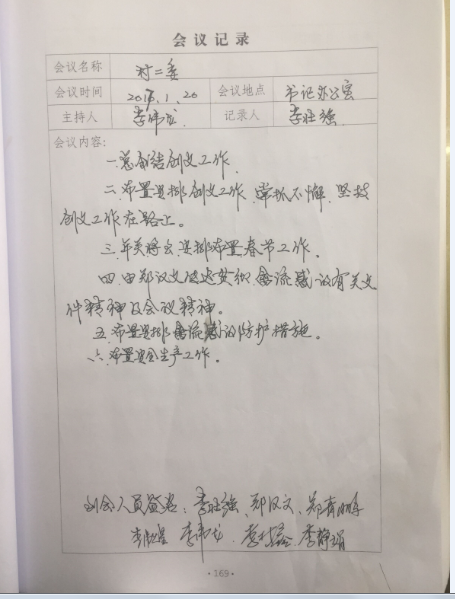 会议记录
会议名称 村二委
会议时间 2018.1.20 会议地点 书记办公室
主持人 李伟龙 记录人 李旺强
会议内容:
一.总结创文工作.
二.布置安排创文工作,常抓不懈,坚持
创文工作在路上。
三.年关将至,安排布置春节工作.
四.由郑汉文传达贯彻禽流感设有关文
件精神及会议精神。
五.布置安排禽流感的防护措施。
六.布置安全生产工作.
到会人员签名:李旺强、郑汉文、郑
李伟龙 李静娟
·169·